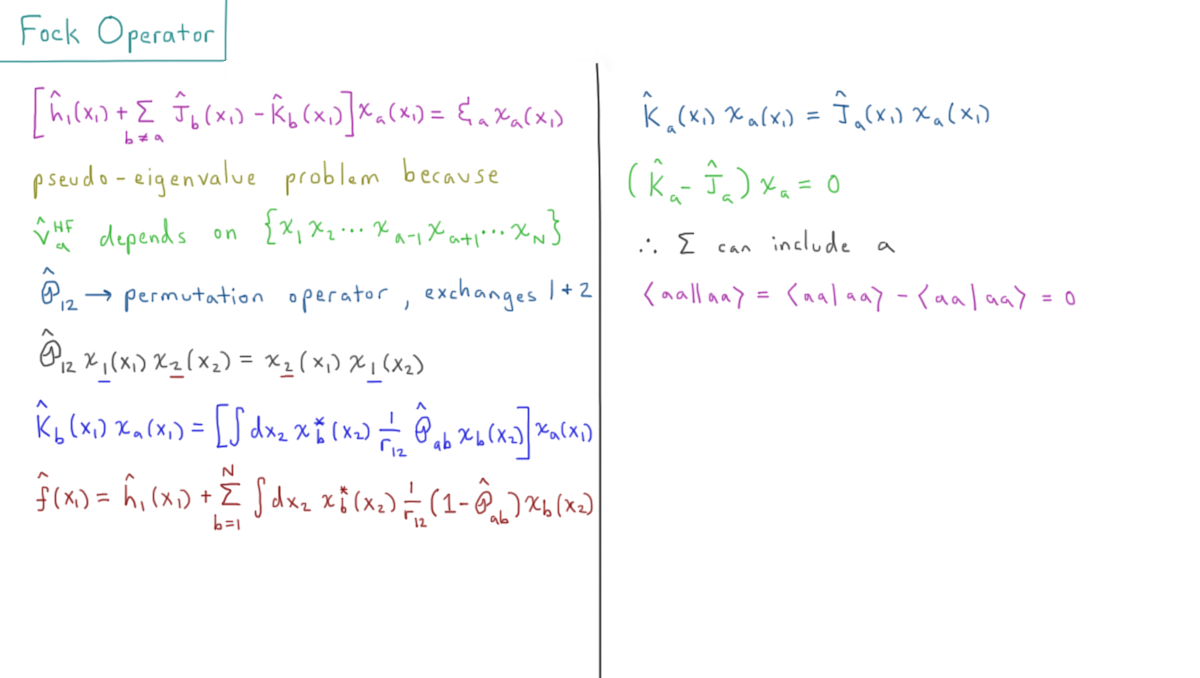 Fock Operator
[ĥ₁(x₁) + Σ_{b≠a} Ĵ_b(x₁) - K̂_b(x₁)]χ_a(x₁) = ξ_a χ_a(x₁)
pseudo-eigenvalue problem because
v̂_a^{HF} depends on {χ₁ χ₂ ⋯ χ_{a-1} χ_{a+1} ⋯ χ_N}
𝒫̂₁₂ → permutation operator, exchanges 1+2
𝒫̂₁₂ χ₁(x₁) χ₂(x₂) = χ₂(x₁) χ₁(x₂)
K̂_b(x₁) χ_a(x₁) = [∫dx₂ χ_b^*(x₂) 1/r₁₂ 𝒫̂_{ab} χ_b(x₂)]χ_a(x₁)
f̂(x₁) = ĥ₁(x₁) + Σ_{b=1}^{N} ∫dx₂ χ_b^*(x₂) 1/r₁₂ (1-𝒫̂_{ab})χ_b(x₂)
K̂_a(x₁) χ_a(x₁) = Ĵ_a(x₁) χ_a(x₁)
(K̂_a - Ĵ_a) χ_a = 0
∴ Σ can include a
⟨aa||aa⟩ = ⟨aa|aa⟩ - ⟨aa|aa⟩ = 0